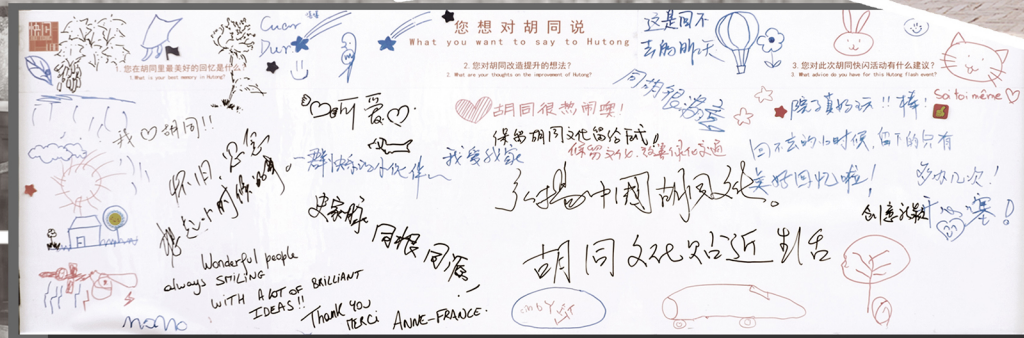 您想对胡同说
What you want to say to Hutong
1.您在胡同里最美好的回忆是什么?
1. What is your best memory in Hutong?
2.您对胡同改造提升的想法?
2. What are your thoughts on the improvement of Hutong?
3.您对此次胡同快闪活动有什么建议?
3. What advice do you have for this Hutong flash event?
这是回不
去的昨天
我♡胡同!!
爱♡
胡同很热闹噢!
保留胡同文化留给后代!
保留文化,改善绿化交通
院子真好玩!!棒!
Sois toi même ♡
回不去的小时候,留下的只有
美好回忆啦!
多办几次!
怀旧,思念
想念小时候的事。
一群快乐的小伙伴~
我爱我家
弘扬中国胡同文化。
史家胡同
同根同源
胡同文化贴近生活
Wonderful people
always SMILING
WITH A LOT OF BRILLIANT
IDEAS!!
THANK YOU
MERCI ANNE-FRANCE.
MOMO